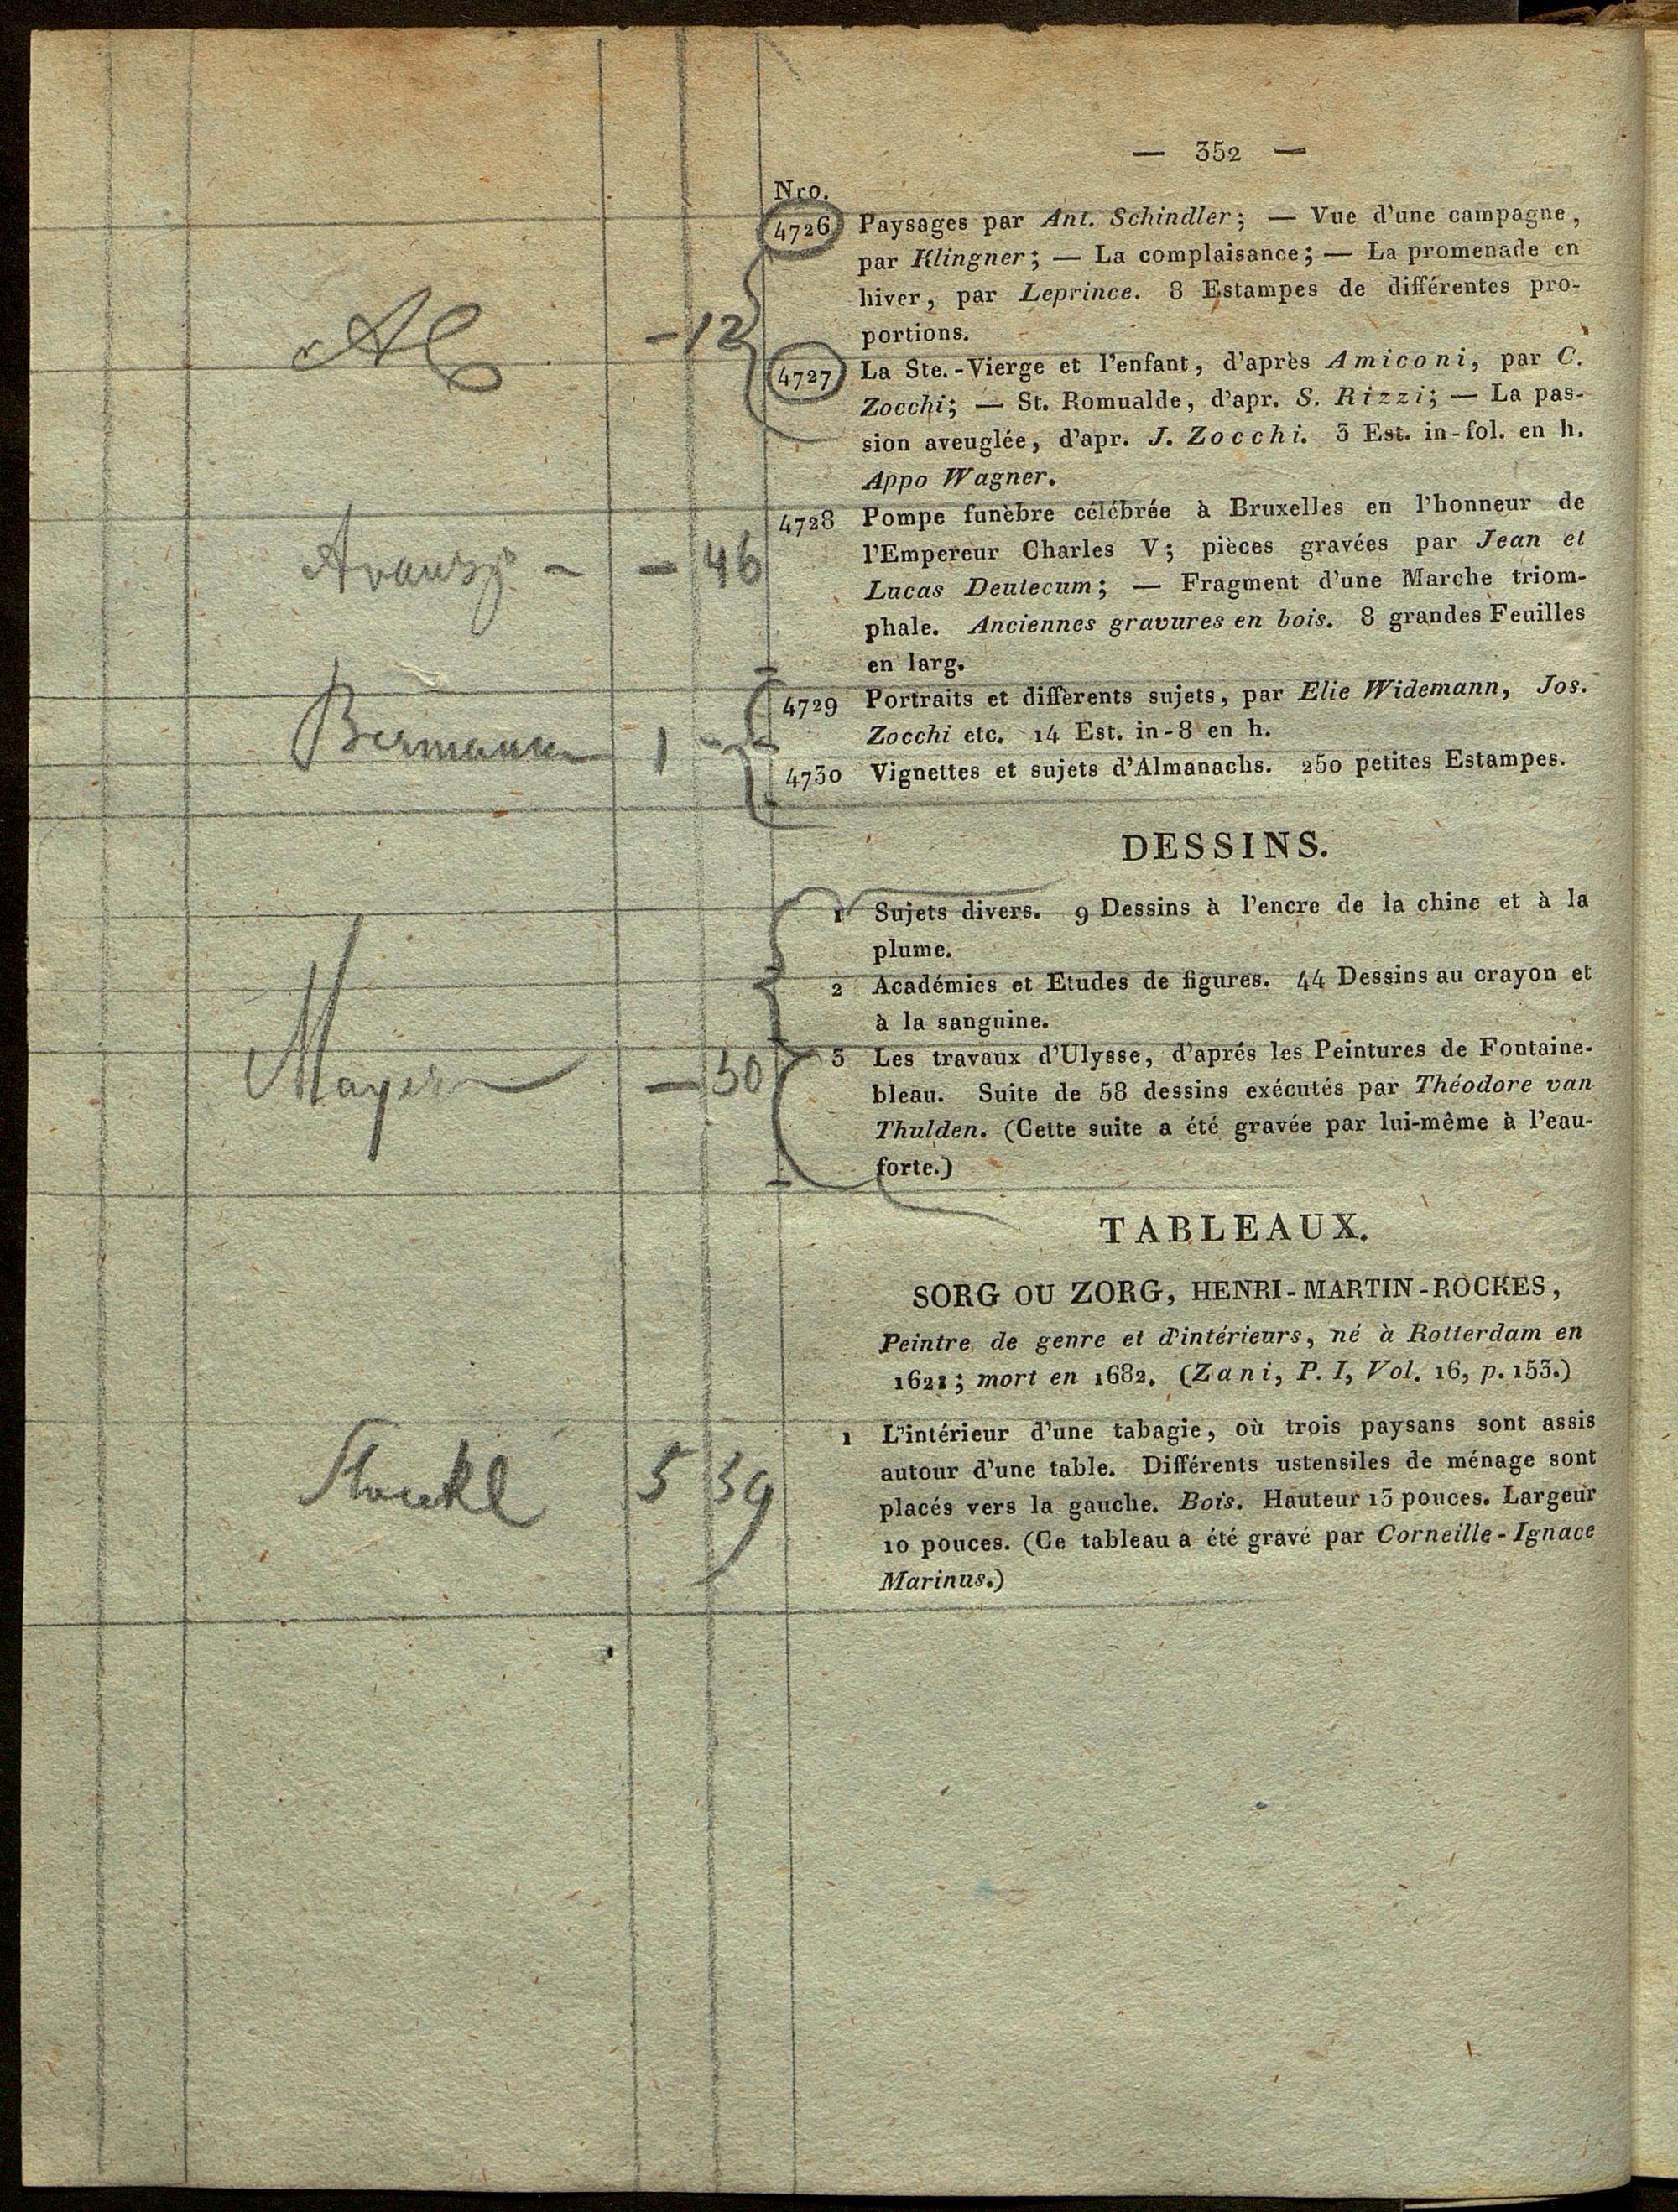 — 352 —
Nro.
4726 Paysages par Ant. Schindler; — Vue d'une campagne,
par Klingner; — La complaisance; — La promenade en
hiver, par Leprince. 8 Estampes de différentes pro-
portions.
- 12
4727 La Ste.-Vierge et l'enfant, d'après Amiconi, par C.
Zocchi; — St. Romualde, d'apr. S. Rizzi; — La pas-
sion aveuglée, d'apr. J. Zocchi. 3 Est. in-fol. en h.
Appo Wagner.
4728 Pompe funèbre célébrée à Bruxelles en l'honneur de
l'Empereur Charles V; pièces gravées par Jean et
- 46
Lucas Deutecum; — Fragment d'une Marche triom-
phale. Anciennes gravures en bois. 8 grandes Feuilles
en larg.
4729 Portraits et différents sujets, par Elie Widemann, Jos.
Zocchi etc. 14 Est. in-8 en h.
Bermann 1 -
4730 Vignettes et sujets d'Almanachs. 250 petites Estampes.
DESSINS.
1 Sujets divers. 9 Dessins à l'encre de la chine et à la
plume.
2 Académies et Etudes de figures. 44 Dessins au crayon et
à la sanguine.
3 Les travaux d'Ulysse, d'aprés les Peintures de Fontaine-
Mayer — 30
bleau. Suite de 58 dessins exécutés par Théodore van
Thulden. (Cette suite a été gravée par lui-même à l'eau-
forte.)
TABLEAUX.
SORG OU ZORG, HENRI-MARTIN-ROCKES,
Peintre de genre et d'intérieurs, né à Rotterdam en
1621; mort en 1682. (Zani, P. I, Vol. 16, p. 153.)
1 L'intérieur d'une tabagie, où trois paysans sont assis
autour d'une table. Différents ustensiles de ménage sont
Stoeckl 5 39
placés vers la gauche. Bois. Hauteur 13 pouces. Largeur
10 pouces. (Ce tableau a été gravé par Corneille-Ignace
Marinus.)